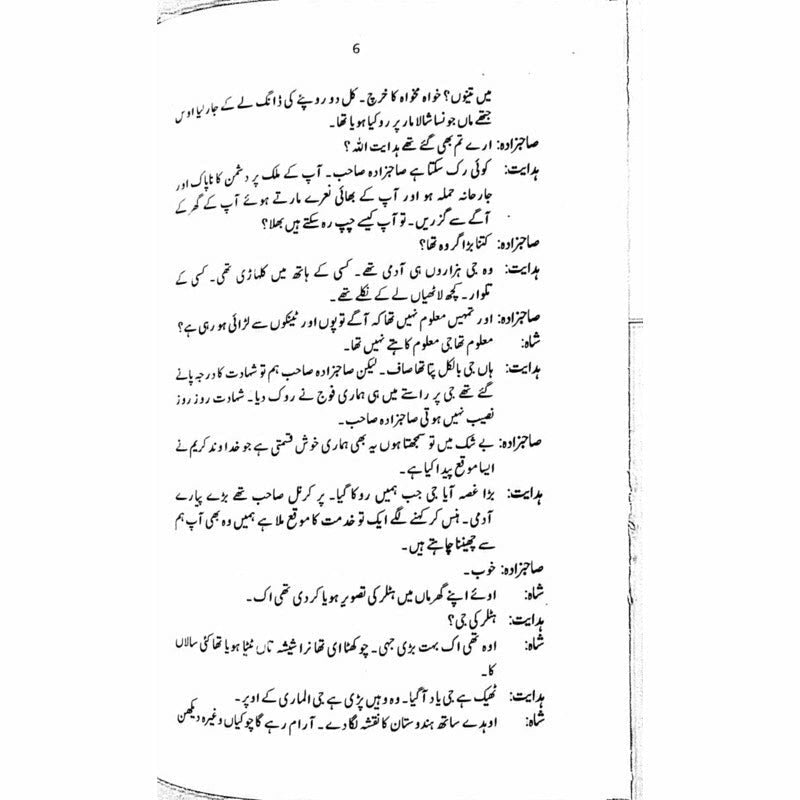 6
میں تینوں؟ خواہ مخواہ کا خرچ۔ کل دو روپے کی ڈانگ لے کے جار لیا اوس
جتھے ماں جونسا شالامار پر روکیا ہویا تھا۔
صاحبزادہ: ارے تم بھی گئے تھے ہدایت اللہ؟
ہدایت: کوئی رک سکتا ہے صاحبزادہ صاحب۔ آپ کے ملک پر دشمن کا ناپاک اور
جارحانہ حملہ ہو اور آپ کے بھائی نعرے مارتے ہوئے آپ کے گھر کے
آگے سے گزریں۔ تو آپ کیسے چپ رہ سکتے ہیں بھلا؟
صاحبزادہ: کتنا بڑا گروہ تھا؟
ہدایت: وہ جی ہزاروں ہی آدمی تھے۔ کسی کے ہاتھ میں کلہاڑی تھی۔ کسی کے
تلوار۔ کچھ لاٹھیاں لے کے نکلے تھے۔
صاحبزادہ: اور تمہیں معلوم نہیں تھا کہ آگے توپوں اور ٹینکوں سے لڑائی ہو رہی ہے؟
شاہ: معلوم تھا جی معلوم کاہتے نہیں تھا۔
ہدایت: ہاں جی بالکل پتا تھا صاف۔ لیکن صاحبزادہ صاحب ہم تو شہادت کا درجہ پانے
گئے تھے جی پر راستے میں ہی ہماری فوج نے روک دیا۔ شہادت روز روز
نصیب نہیں ہوتی صاحبزادہ صاحب۔
صاحبزادہ: بے شک میں تو سمجھتا ہوں یہ بھی ہماری خوش قسمتی ہے جو خداوند کریم نے
ایسا موقع پیدا کیا ہے۔
ہدایت: بڑا غصہ آیا جی جب ہمیں روکا گیا۔ پر کرنل صاحب تھے بڑے پیارے
آدمی۔ ہنس کر کہنے لگے ایک تو خدمت کا موقع ملا ہے ہمیں وہ بھی آپ ہم
سے چھیننا چاہتے ہیں۔
صاحبزادہ: خوب۔
شاہ: اوئے اپنے گھر ماں میں ہٹلر کی تصویر ہویا کردی تھی اک۔
ہدایت: ہٹلر کی جی؟
شاہ: اوہ تھی اک بہت بڑی جہی۔ چوکھٹا ای تھا نرا شیشہ تاں ٹٹیا ہویا تھا کئی سالاں
کا۔
ہدایت: ٹھیک ہے جی یاد آگیا۔ وہ وہیں پڑی ہے جی الماری کے اوپر۔
شاہ: اوہدے ساتھ ہندوستان کا نقشہ لگا دے۔ آرام رہے گا چوکیاں وغیرہ دیکھن